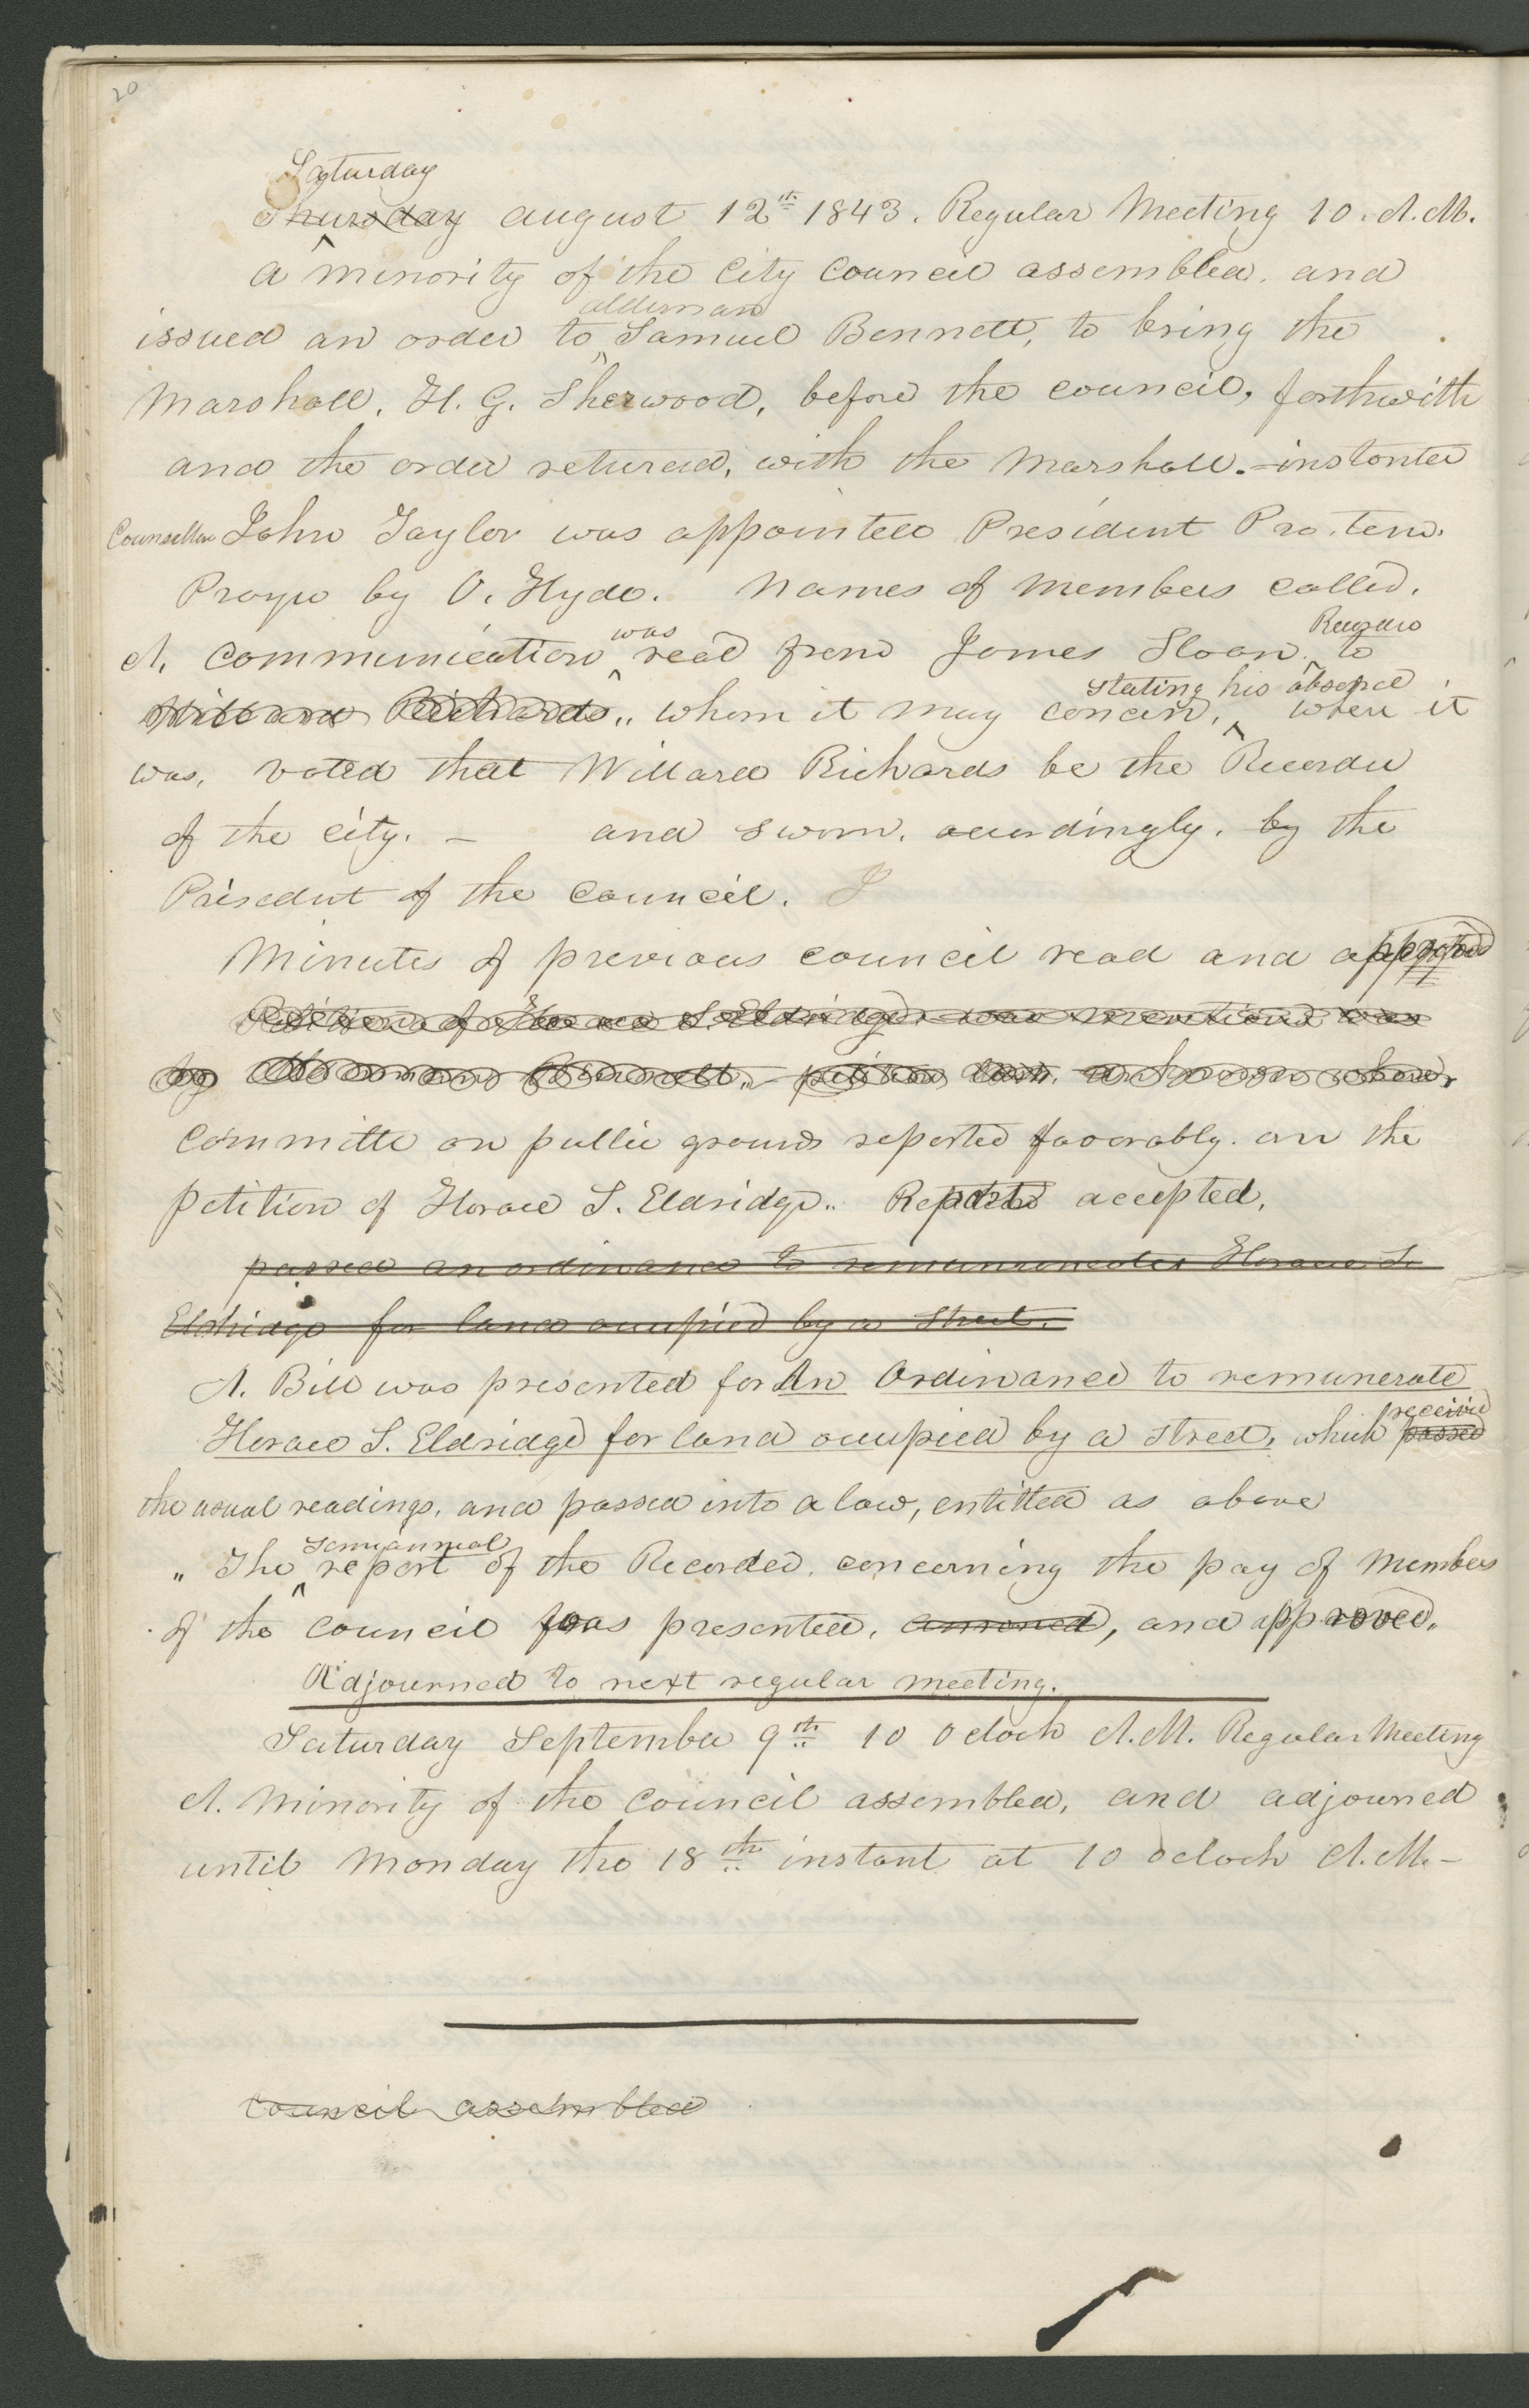 20
Saturday
Thursday august 12th 1843. Regular Meeting 10. A.M.
A minority of the City Council assembled. and
alderman
issued an order to Samuel Bennett, to bring the
Marshall, H. G. Sherwood, before the council, forthwith
and the order returned, with the Marshall. - instanter
Counsellor John Taylor was appointed President Pro. tem.
Prayer by O. Hyde. Names of members called.
was
A. Communication read from James Sloan. to
Willard Richards,, whom it may concern, where it
stating his absence
was, voted that Willard Richards be the Recorder
of the city. - and sworn. accordingly. by the
President of the Council. I
Minutes of previous council read and approved
Petition of Horace S. Eldridge was mentioned
by
Committe on public grounds reported favorably. on the
petition of Horace S. Eldridge.. Report accepted,
passed an ordinance to remunerate Horace S.
Eldridge for land occupied by a street.
A. Bill was presented for An Ordinance to remunerate
Horace S. Eldridge for land occupied by a street, which passed
received
the usual readings, and passed into a law, entitled as above
Semiannual
„ The report of the Recorder. concerning the pay of Members
of the council was presented, and approved.
Adjourned to next regular meeting.
Saturday September 9th 10 oclock A.M. Regular Meeting
A. Minority of the Council assembled, and adjourned
until Monday the 18th instant at 10 oclock A.M. -
Council assembled